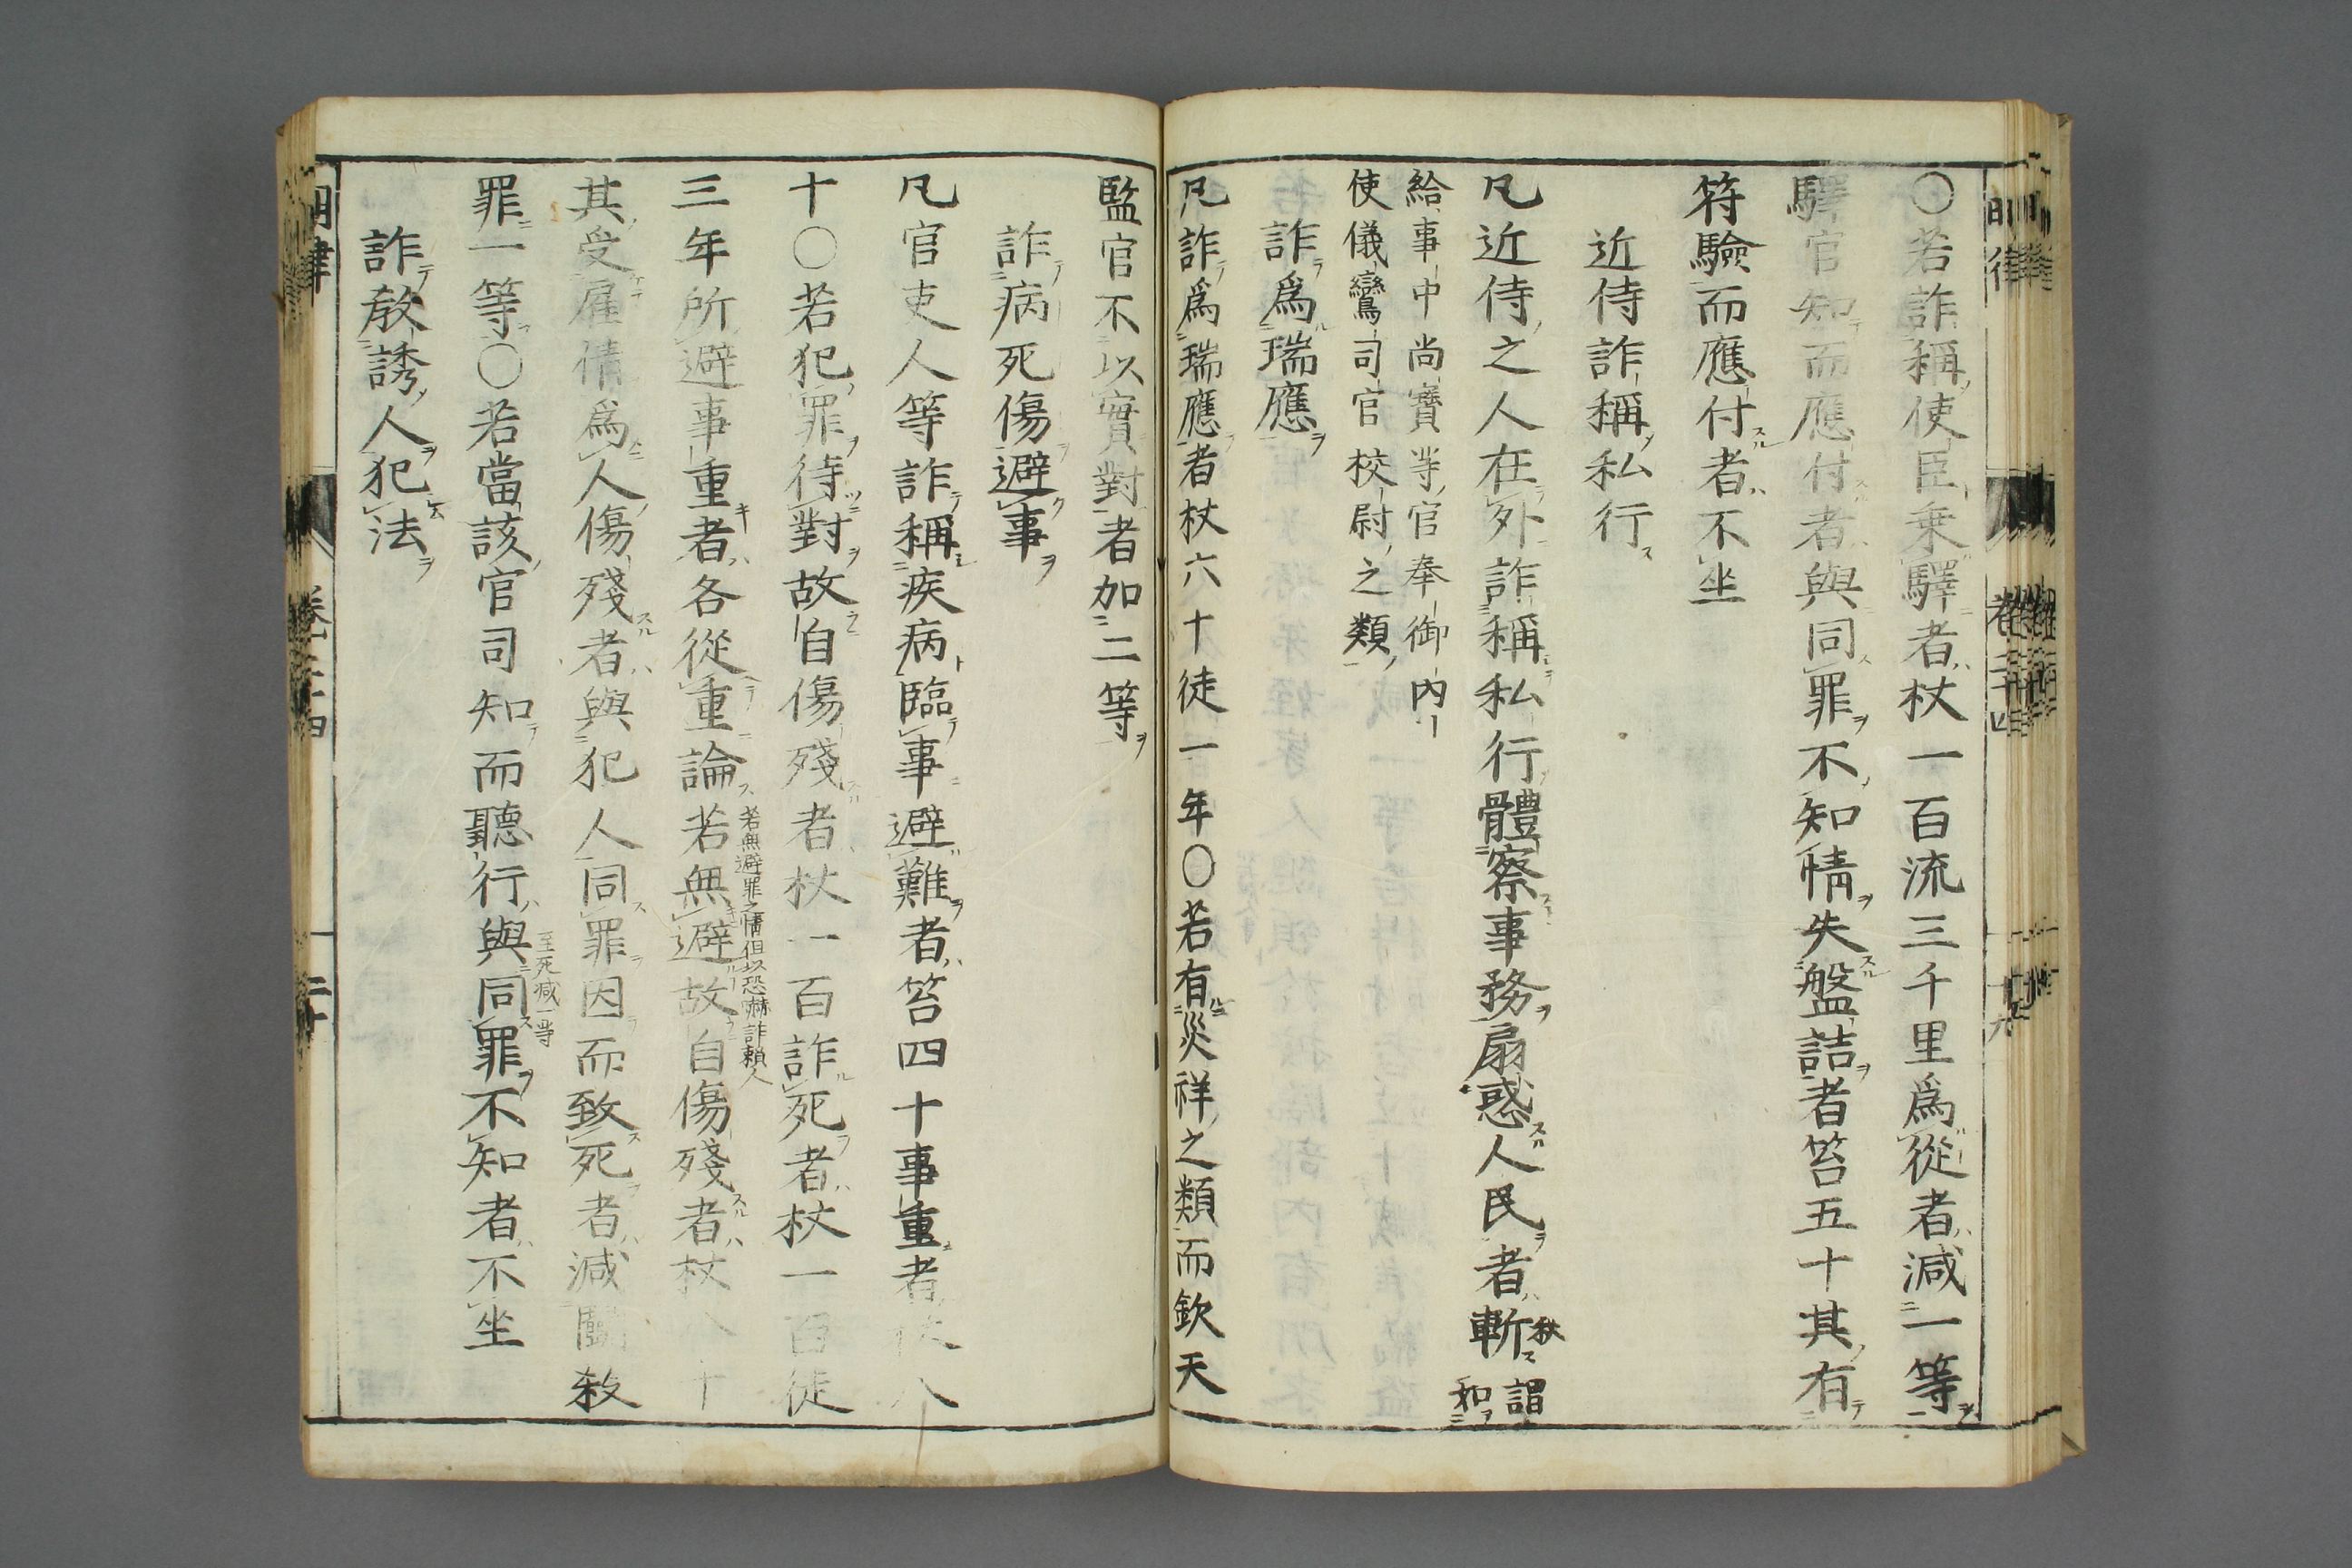 ○若詐稱使臣乗驛者杖一百流三千里爲從者減一等
驛官知而應付者與同罪不知情失盤詰者笞五十其有
符驗而應付者不坐
近侍詐稱私行
凡近侍之人在外詐稱私行體察事務扇惑人民者斬秋謂和
給事中尚寶等官奉御內
使儀鸞司官校尉之類
詐爲瑞應
凡詐爲瑞應者杖六十徒一年○若有災祥之類而欽天
監官不以實對者加二等
詐病死傷避事
凡官吏人等詐稱疾病臨事避難者笞四十事重者杖八
十○若犯罪待對故自傷殘者杖一百詐死者杖一百徒
三年所避事重者各從重論若無避故自傷殘者杖八十
若無避罪之情但以恐嚇詐賴人
其受雇倩爲人傷殘者與犯人同罪因而致死者減鬬殺
罪一等○若當該官司知而聽行與同罪不知者不坐
至死減一等
詐敎誘人犯法
明律 卷二十四 二十